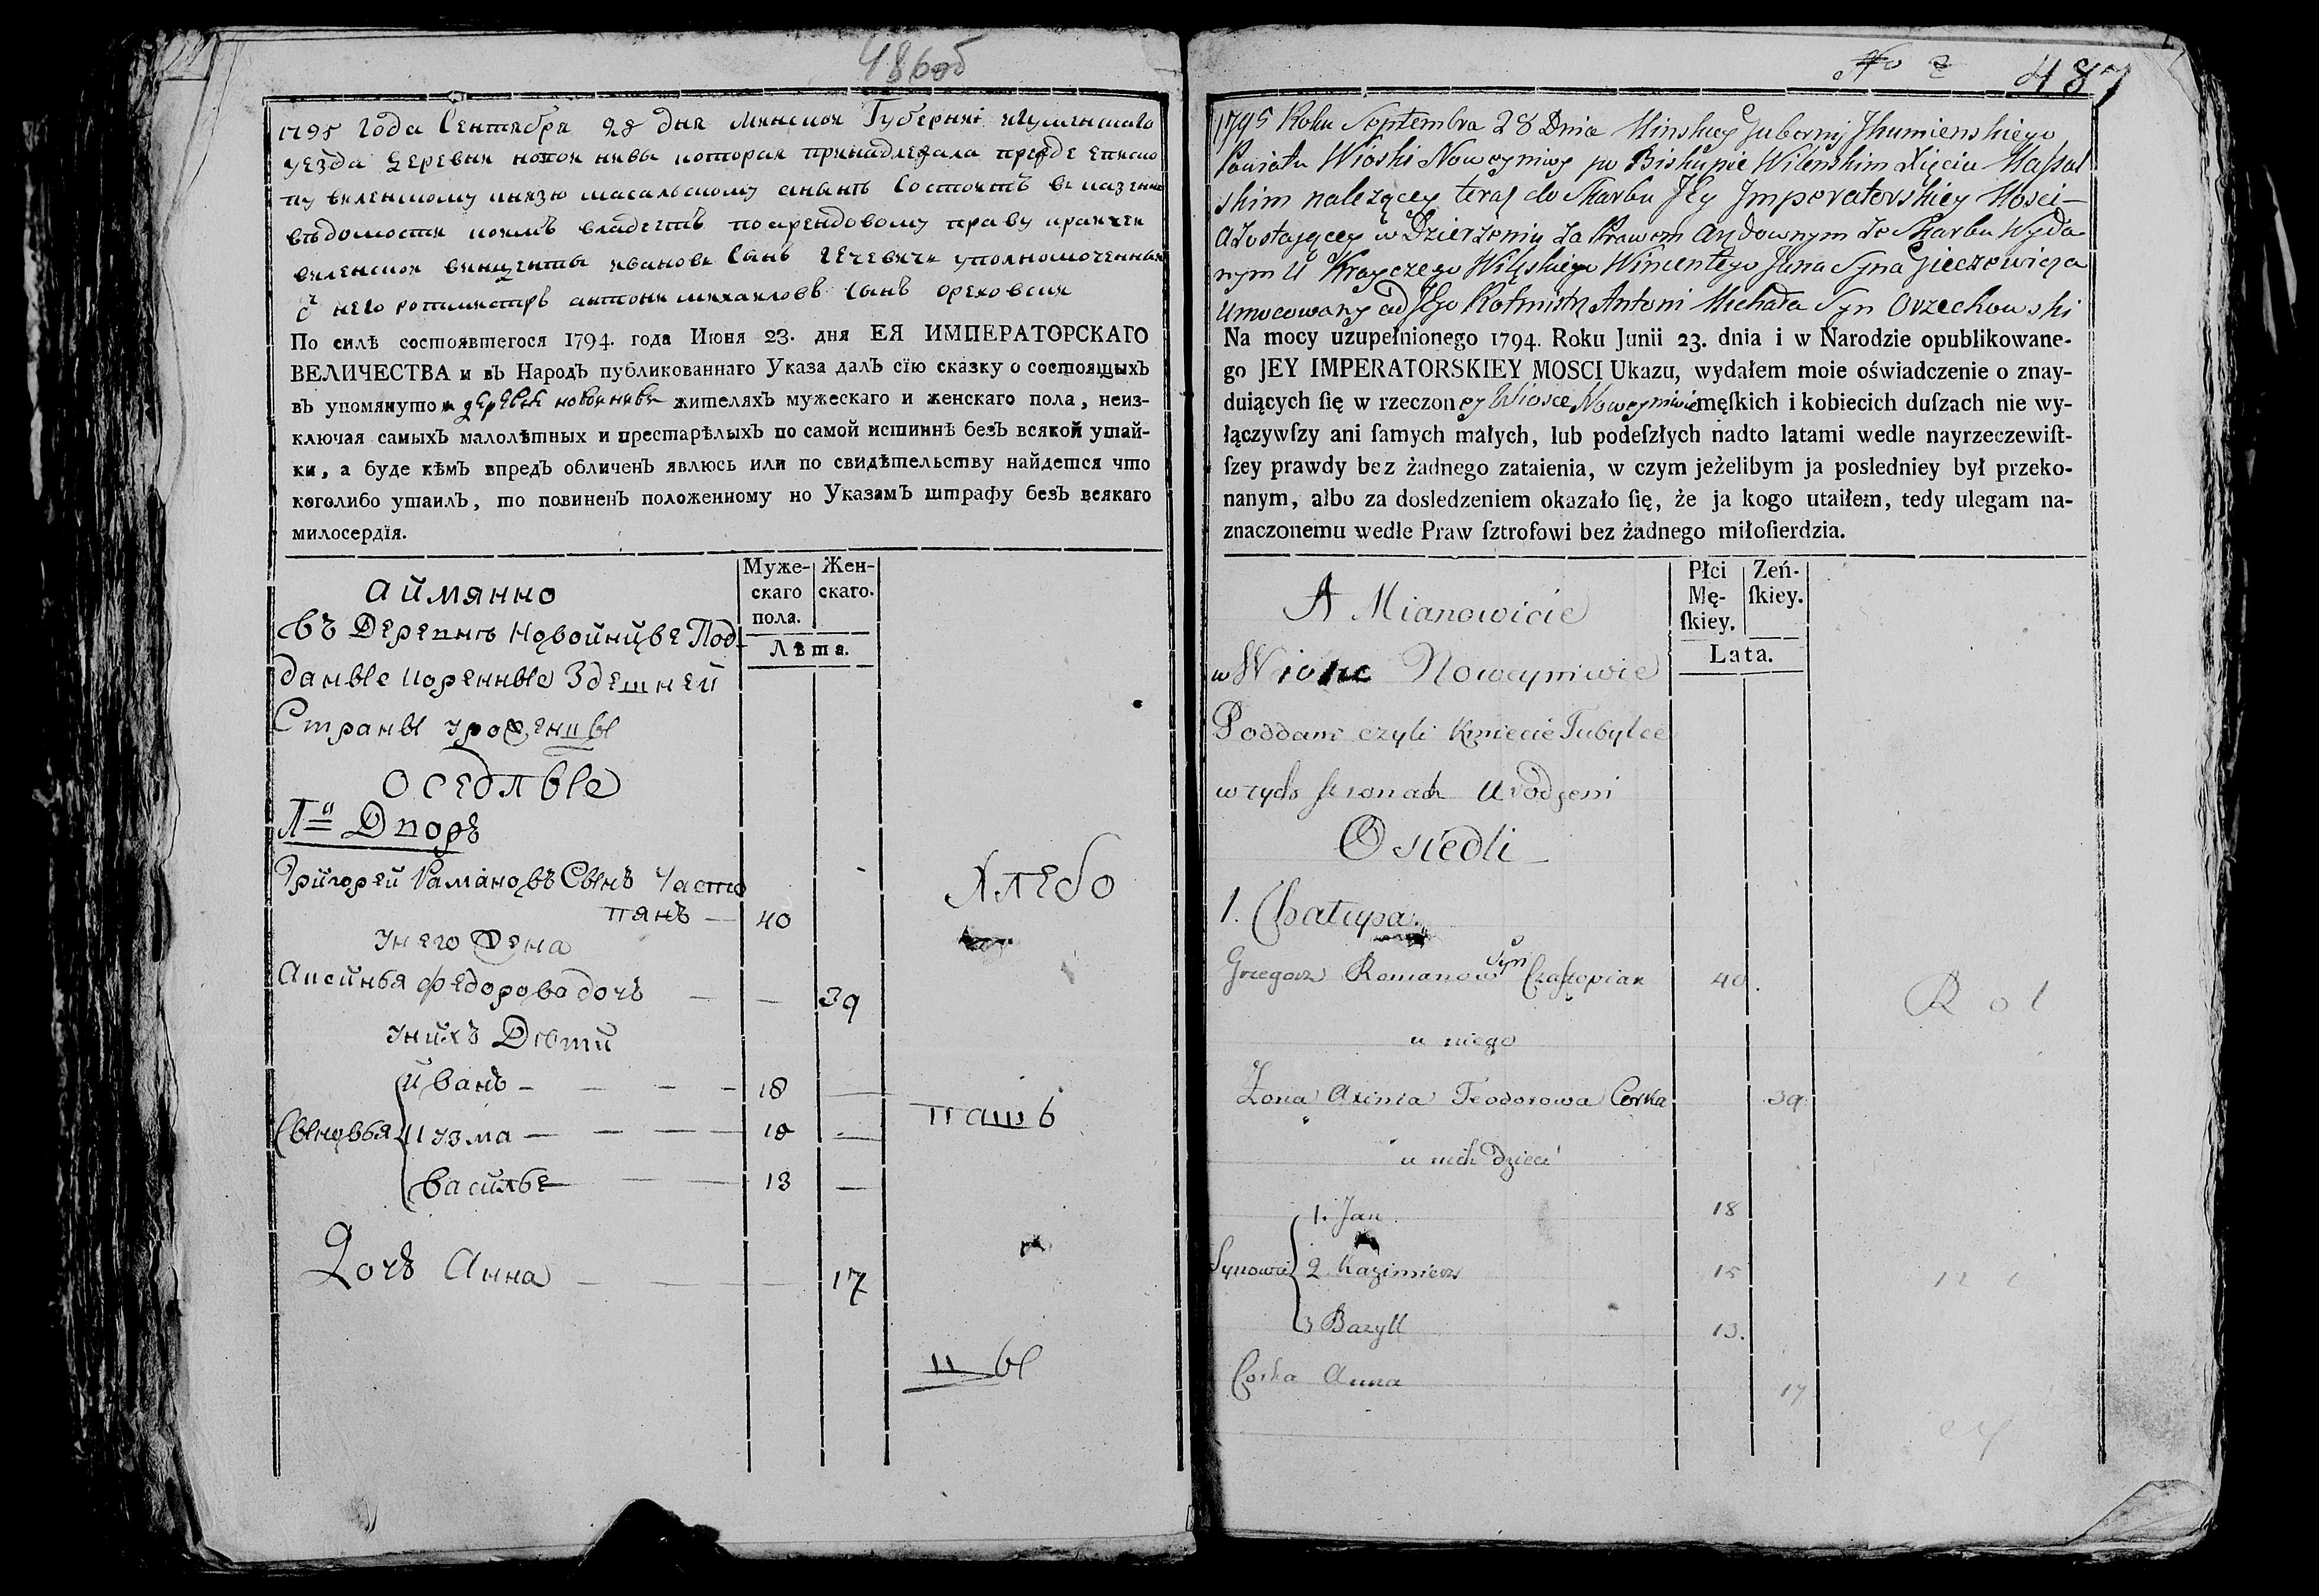 486об
1795 года Сентября 28 дня минской Губерниі игуменскаго
уезда деревни новой нивы которая принадлежала прежде еписко
пу виленскому князю масальскому анынѣ Состоитъ вказенно
вѣдомости коимъ владеетъ поарендовому праву крайчей
виленской винценты иванова Сынъ Гечевичь уполномоченный
ѿ него ротмистръ антони михайловъ Сынъ ореховски
По силѣ состоявшегося 1794. года Июня 23. дня ЕЯ ИМПЕРАТОРСКАГО
ВЕЛИЧЕСТВА и въ Народъ публикованнаго Указа далъ сїю сказку о состоящыхъ
въ упомянутой деревнѣ новой нивѣ жителяхъ мужескаго и женскаго пола, неиз-
ключая самыхъ малолѣтныхъ и престарѣлыхъ по самой истиннѣ безъ всякой утай-
ки, а буде кѣмъ впредь обличенъ явлюсь или по свидѣтельству найдется что
коголибо утаилъ, то повиненъ положенному но Указамъ штрафу безъ всякаго
милосердїя.
Муже- Жен-
скаго скаго.
пола.
Лѣта.
аймянно
въ Деревнѣ Новойниве Под-
даные кореныe Здешней
Страны урожденцы
оседлые
1й Дворъ
Григорей Рамановъ Сынъ Часто
пянъ — 40
унего Жена
Аксинья федорова дочь — — 39
унихъ Дѣти
Иванъ — — — — 18 —
Сыновья Кузма — — — — 18 —
Василье — — 13 —
Дочь Анна — — — 17
Хлебо
паш
цы
No 2 487
1795 Roku Septembra 28 Dnia Minskiey Gubernij Jhumienskiego
Powiatu Wioski Noweyniwy po Biskupie Wilenskim Xięciu Massal
skim należącey teraz do Skarbu Jey Jmperatorskiey Mosci—
a zostającey w Dzierżeniu za Prawem Arędownym ze Skarbu Wyda
nym U Krayczego Wilęskiego Wincentego Jana Syna Gieczewicza
Umocowany od Jego Rotmistrz Antoni Michała Syn Orzechowski
Na mocy uzupełnionego 1794. Roku Junii 23. dnia i w Narodzie opublikowane-
go JEY IMPERATORSKIEY MOSCI Ukazu, wydałem moie oświadczenie o znay-
duiących ſię w rzeczoney Wiosce Noweyniwie męſkich i kobiecich duſzach nie wy-
łączywſzy ani ſamych małych, lub podeſzłych nadto latami wedle nayrzeczewiſt-
ſzey prawdy bez żadnego zataienia, w czym jeżelibym ja posledniey był przeko-
nanym, albo za dosledzeniem okazało ſię, że ja kogo utaiłem, tedy ulegam na-
znaczonemu wedle Praw ſztrofowi bez żadnego miłoſierdzia.
Płci Zeń-
Mę- ſkiey.
ſkiey.
Lata.
A Mianowicie
w Wiosce Noweyniwie
Poddani czyli Kmiecie Tubylce
w tych stronach Urodzeni
Osiedli
1. Chałupa.
Grzegorz Romanow Syn Czastopian 40.
u niego
Żona Axinia Teodorowa Corka 39
u nich dzieci
1. Jan 18
Synowie 2 Kazimierz 15
3 Bazyli 13.
Corka Anna 17
Rol